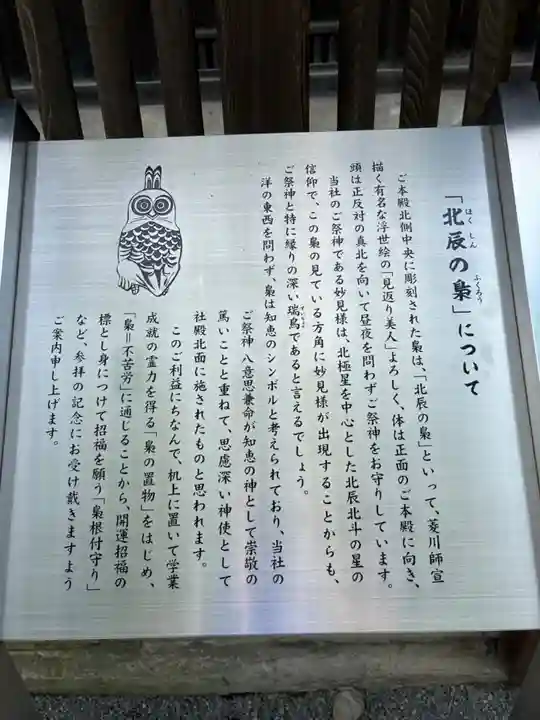 「北辰の梟」について
ほくしん
ふくろう
ご本殿北側中央に彫刻された梟は、「北辰の梟」といって、菱川師宣
描く有名な浮世絵の「見返り美人」よろしく、体は正面のご本殿に向き、
頭は正反対の真北を向いて昼夜を問わずご祭神をお守りしています。
当社のご祭神である妙見様は、北極星を中心とした北辰北斗の星の
信仰で、この梟の見ている方角に妙見様が出現することからも、
ご祭神と特に縁りの深い瑞鳥であると言えるでしょう。
ずいちょう
洋の東西を問わず、梟は知恵のシンボルと考えられており、当社の
ご祭神八意思兼命が知恵の神として崇敬の
篤いことと重ねて、思慮深い神使として
社殿北面に施されたものと思われます。
このご利益にちなんで、机上に置いて学業
成就の霊力を得る「梟の置物」をはじめ、
「梟=不苦労」に通じることから、開運招福の
標とし身につけて招福を願う「梟根付守り」
など、参拝の記念にお受け戴きますよう
ご案内申し上げます。